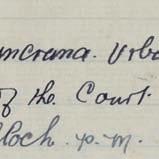 ncrana. Urba
of the Court.
lloch. p.m.